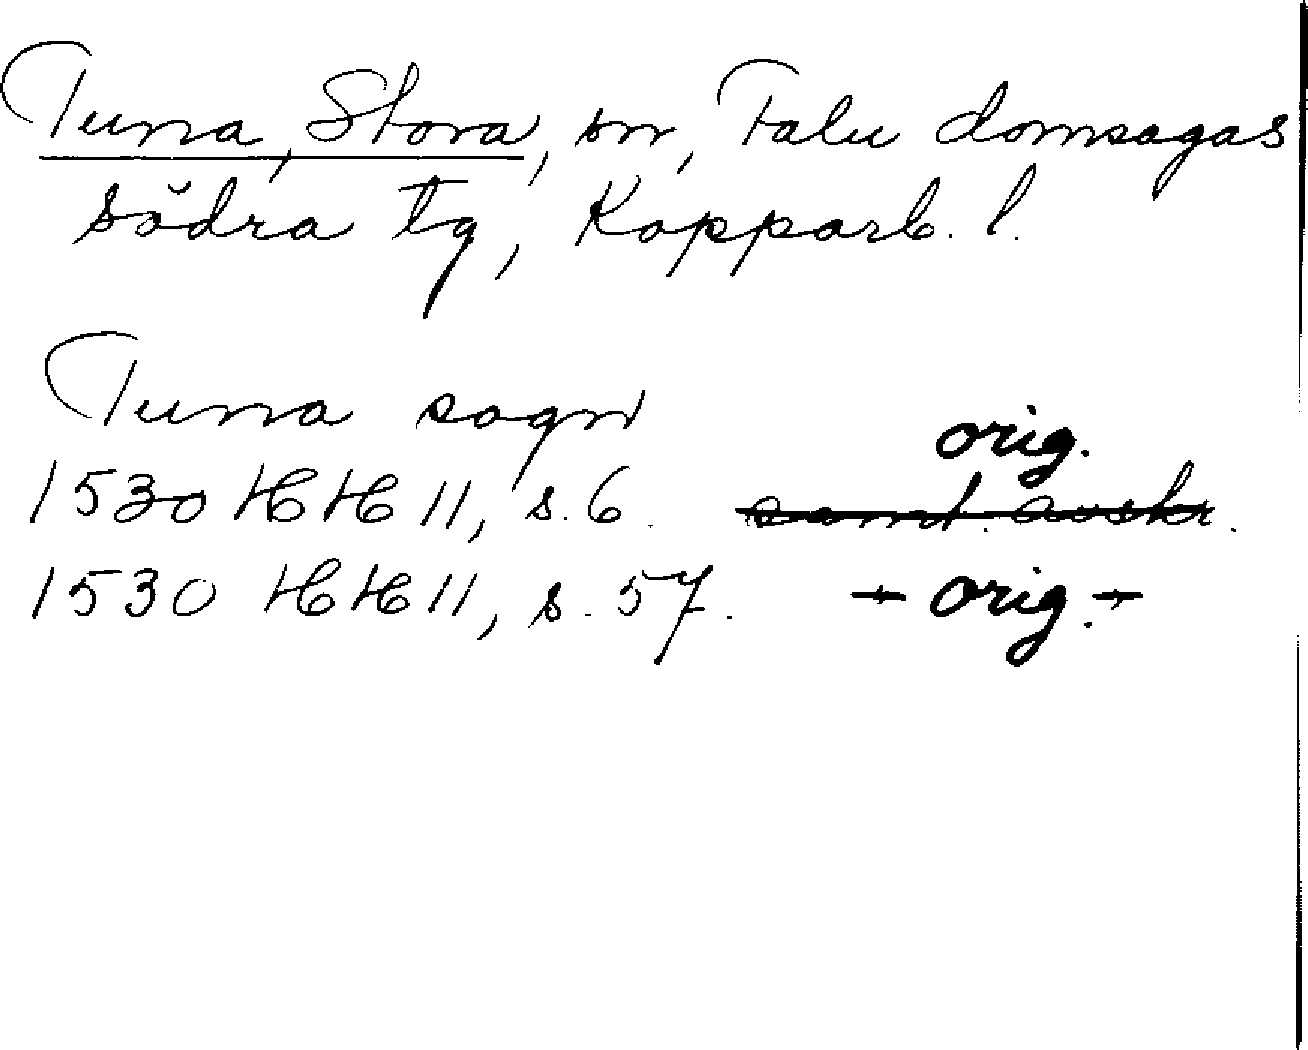 Tuna, Stora, sn, Falu domsagas
södra tg, Kopparb. l.
Tuna sogn
orig.
1530 HH 11, s. 6. samt. avskr.
1530 HH 11, s. 57. - orig. -